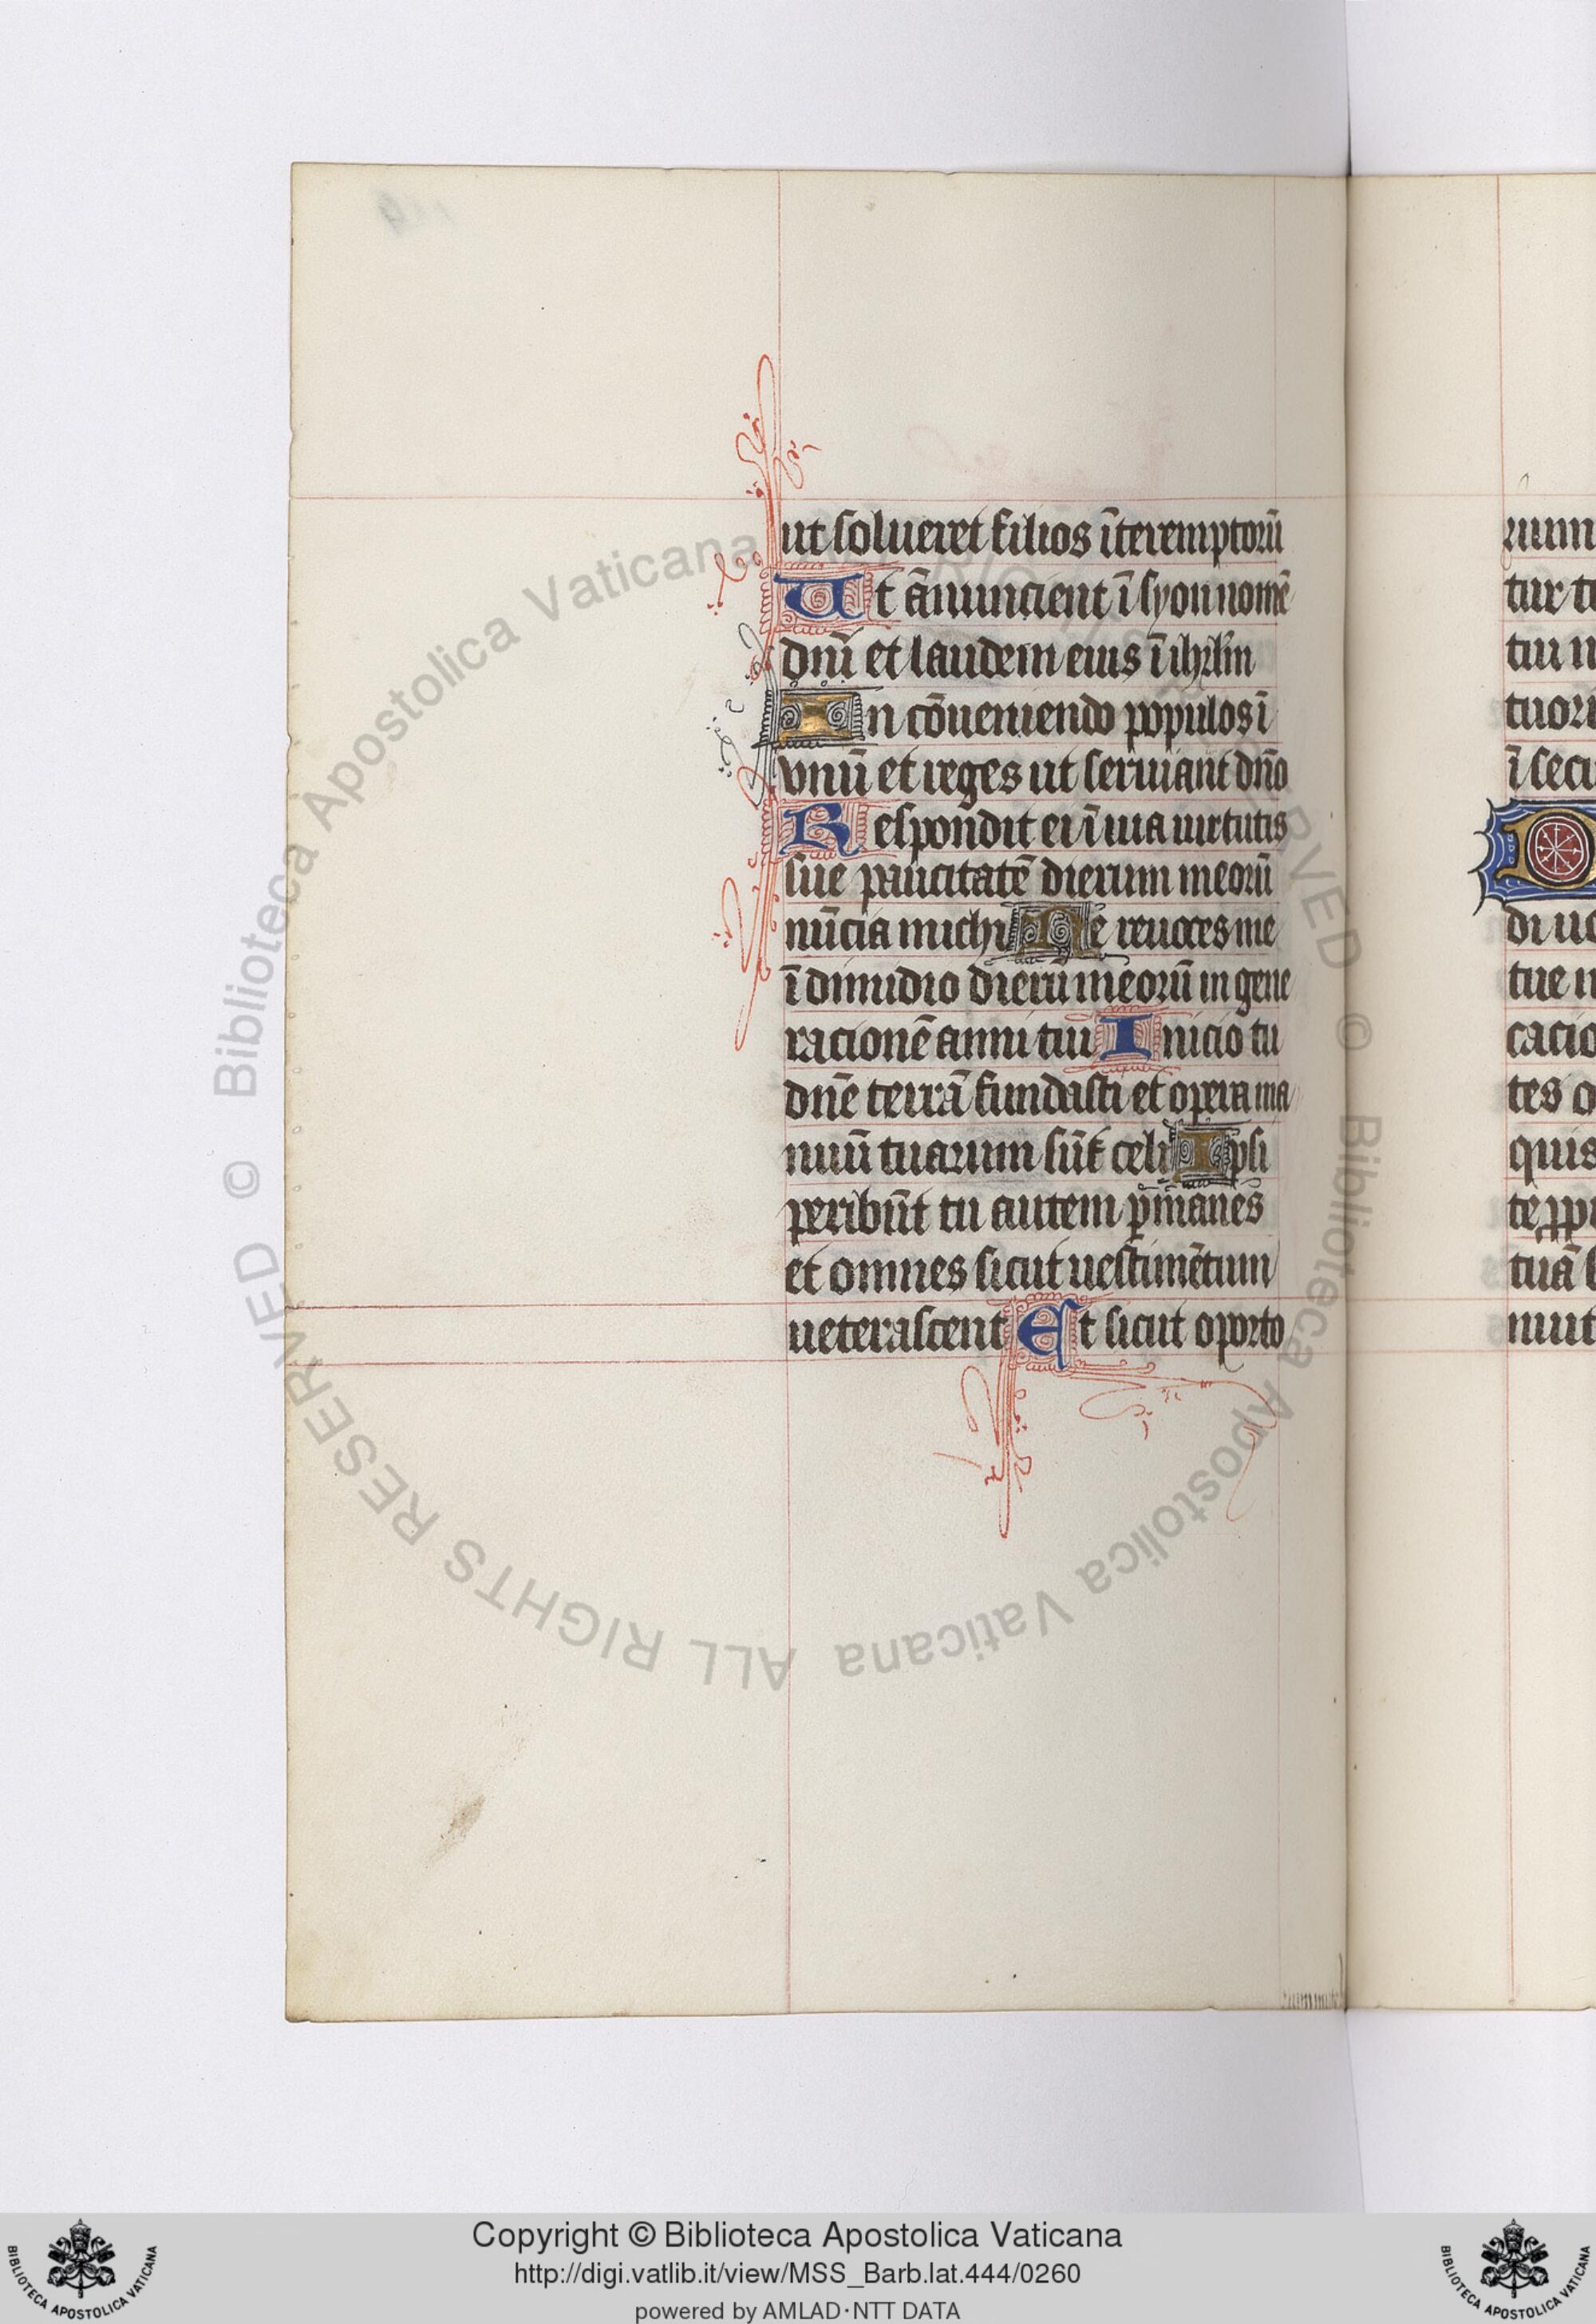 ut solueret filios īteremptorū
Ut ānuncient ī syon nomē
dnī et laudem eius ī ihrlm̄
In cōueniendo populos ī
vnū et reges ut seruiant dn̄o
Respondit ei ī uia uirtutis
sue paucitatē dierum meorū
nūcia michi Ne reuoces me
ī dimidio dierū meorū in gene
racionē anni tui Inicio tu
dn̄e terrā fundasti et opera ma
nuū tuarum sūt celi Ipsi
peribūt tu autem p̄manes
et omnes sicut uestimētum
ueterascent Et sicut oporto
rum
tur
tui
tuor
ī
D
di
tue
cacio
tes
quis
te
tuā
© Biblioteca Apostolica Vaticana ALL RIGHTS RESERVED
© Biblioteca Apostolica Vaticana ALL RIGHTS RESERVED
Copyright © Biblioteca Apostolica Vaticana
http://digi.vatlib.it/view/MSS_Barb.lat.444/0260
powered by AMLAD·NTT DATA
BIBLIOTECA APOSTOLICA VATICANA
BIBLIOTECA APOSTOLICA VATICANA